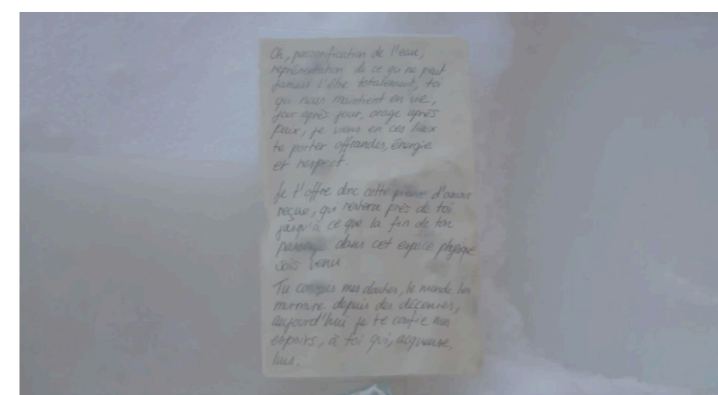 Oh, personnification de l'eau,
représentation de ce qui ne peut
jamais l'être totalement, toi
qui nous maintient en vie,
jour après jour, orage après
je viens en ces lieux
te porter offrandes, énergie
et respect.
Je t'offre donc cette d'amour
reçue, qui restera près de toi
jusqu'à ce que la fin de ton
passage dans cet espace physique
sois venu
Tu connais mes doutes, le monde les
murmure depuis des décennies,
aujourd'hui je te confie mes
espoirs, à toi qui,
luis.